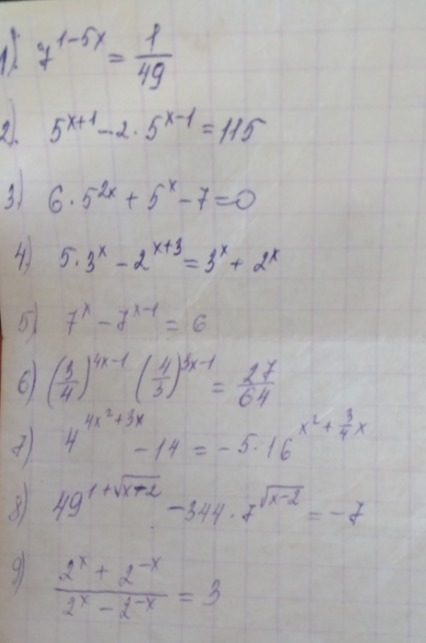 1). 7^{1-5x} = 1/49
2). 5^{x+1} - 2 · 5^{x-1} = 115
3) 6 · 5^{2x} + 5^x - 7 = 0
4) 5 · 3^x - 2^{x+3} = 3^x + 2^x
5) 7^x - 7^{x-1} = 6
6) (3/4)^{4x-1} (4/3)^{3x-1} = 27/64
7) 4^{4x^2+3x} - 14 = -5 · 16^{x^2 + 3/4 x}
8) 49^{1+√(x-2)} - 344 · 7^{√(x-2)} = -7
9) (2^x + 2^{-x})/(2^x - 2^{-x}) = 3